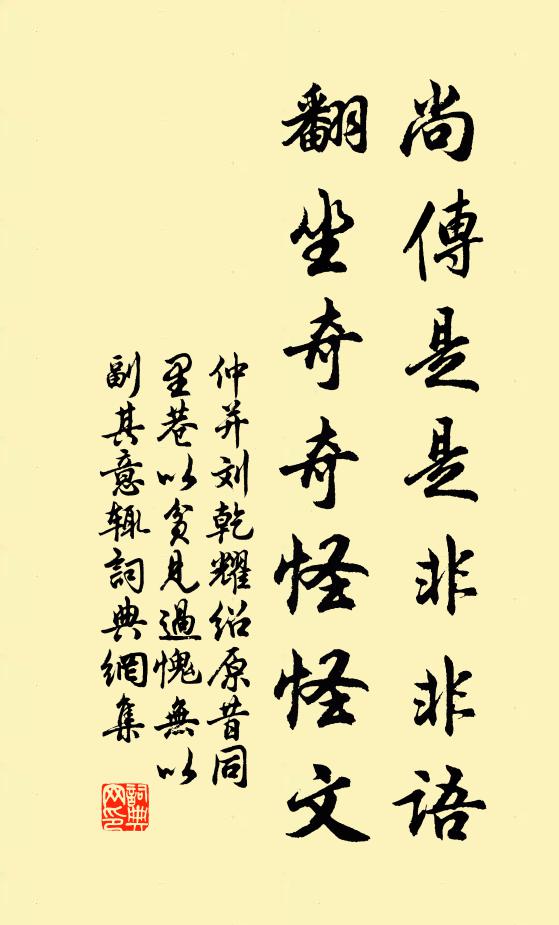 尚傳是是非非語
翻坐奇奇怪怪文
仲并刘乾耀绍原昔同
里巷以贫見過愧無以
副其意辄詞典網集
詞典
网印